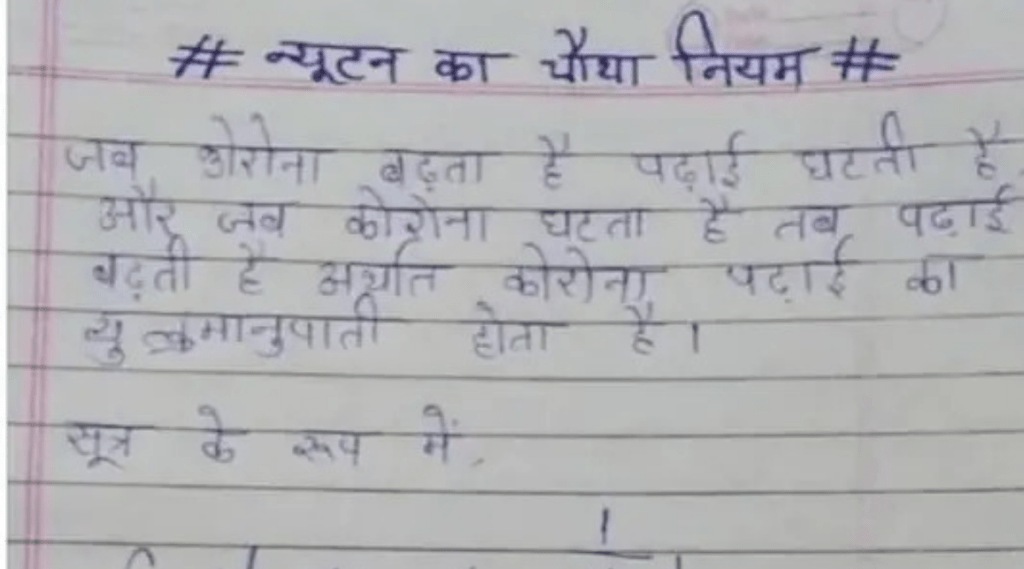 # न्यूटन का चौथा नियम #
जब कोरोना बढ़ता है पढ़ाई घटती है
और जब कोरोना घटता है तब पढ़ाई
बढ़ती है अर्थात कोरोना पढ़ाई का
व्युत्क्रमानुपाती होता है।
सूत्र के रूप में,
1